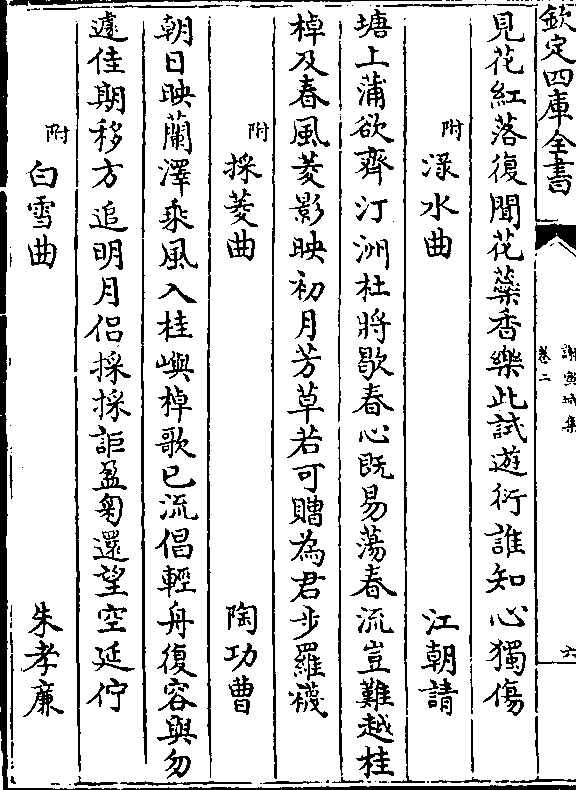 欽定四庫全書
謝宣城集
卷二
六
見花紅落復聞花蘂香樂此試遊衍誰知心獨傷
附 渌水曲 江朝請
塘上蒲欲齊汀洲杜將歇春心既易蕩春流豈難越桂
棹及春風菱影映初月芳草若可贈為君步羅襪
附 採菱曲 陶功曹
朝日映蘭澤乘風入桂嶼棹歌已流倡輕舟復容與勿
遽佳期移方追明月侣採採詎盈匊還望空延佇
附 白雪曲 朱孝廉